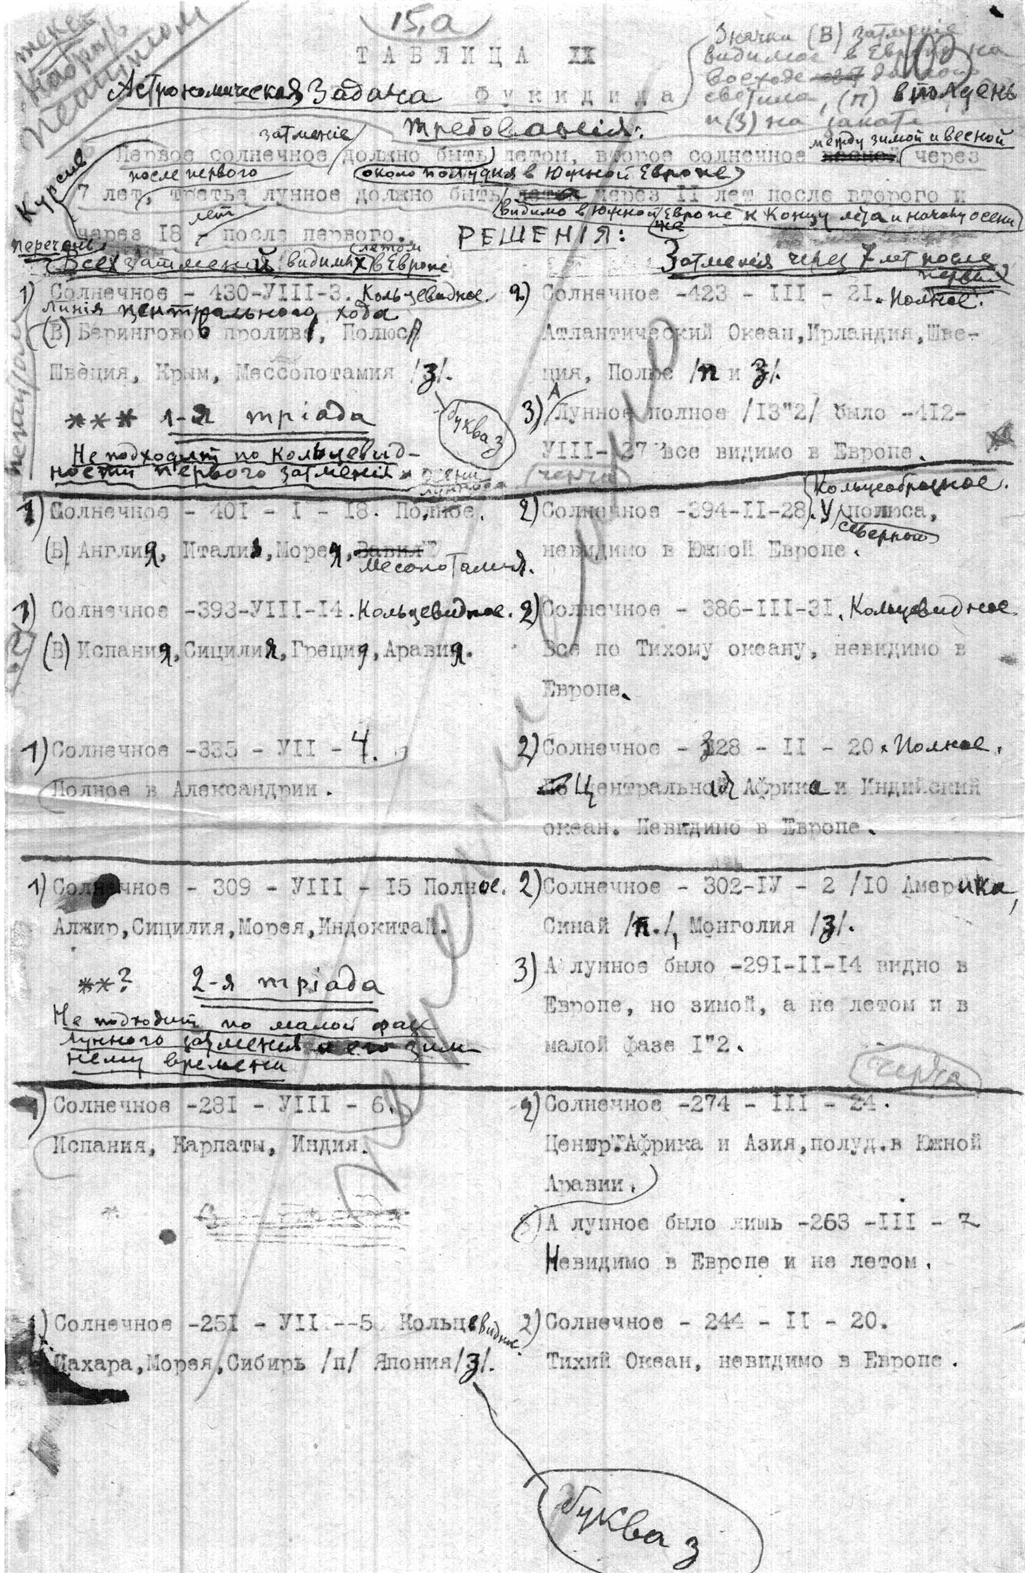 15,а
ТАБЛИЦА XX
Значки (В) затменіе
видимое в Европе на
восходе
светила, (П) в полдень
и (З) на закате
текст
набрать
петитом
Астрономическая задача Фукидида
Требованія:
Первое солнечное затменіе должно быть летом, второе солнечное между зимой и весной через
7 лет после первого (около полудня в Южной Европе), третье лунное должно быть через II лет после второго и
через I8 лет после первого. (видимо в Южной же Европе к концу лета и началу осени)
Курсив
РЕШЕНІЯ:
перечень
Всех затмений видимых летом в Европе
Затменія через 7 лет после первых
1) Солнечное - 430-УIII-3. Кольцевидное.
Линія центрального хода
(В) Берингово проливо, Полюс
Швеция, Крым, Мессопотамия /З/.
*** 1-я тріада
Не подходит по кольцевид-
ности первого затменія
буква З
2) Солнечное -423 - III - 2I. Полное.
Атлантический Океан, Ирландия, Шве-
ция, Полюс /п и З/.
3) А Лунное полное /I3"2/ было -4I2-
УIII-27 все видимо в Европе.
черта
1) Солнечное - 40I - I - I8. Полное.
(В) Англия, Италия, Морея,
Месопотамия.
2) Солнечное -394-II-28. Кольцеобразное.
У северного полюса,
невидимо в Южной Европе.
1) Солнечное -393-УIII-I4. Кольцевидное.
(В) Испания, Сицилия, Греция, Аравия.
2) Солнечное - 386-III-3I. Кольцевидное
Все по Тихому океану, невидимо в
Европе.
1) Солнечное -335 - УII - 4.
Полное в Александрии.
2) Солнечное - 328 - II - 20. Полное.
Центральная Африка и Индийский
океан. Невидимо в Европе.
1) Солнечное - 309 - УIII - I5 Полное.
Алжир, Сицилия, Морея, Индокитай.
**? 2-я тріада
Не подходит по малой фазе
лунного затменія и его зим-
нему времени
2) Солнечное - 302-IУ - 2 /I0 Америка,
Синай /п./, Монголия /З/.
3) А лунное было -29I-II-I4 видно в
Европе, но зимой, а не летом и в
малой фазе I"2.
черта
1) Солнечное -28I - УIII - 6.
Испания, Карпаты, Индия.
2) Солнечное -274 - III - 24.
Центр. Африка и Азия, полуд. в Южной
Аравии.
3) А лунное было лишь -263 -III - 7
Невидимо в Европе и не летом.
1) Солнечное -25I - УII --5 Кольцевидное.
Сахара, Морея, Сибирь /п/ Япония /З/.
2) Солнечное - 244 - II - 20.
Тихий Океан, невидимо в Европе.
буква З